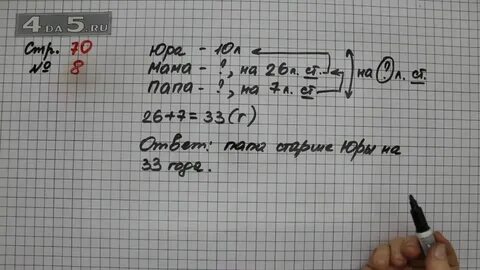 4DA5.RU
Стр. 70
№ 8
Юра - 10 л
Мама - ?, на 26 л. ст.
Папа - ?, на 7 л. ст.
на ? л. ст.
26+7=33(г)
Ответ: папа старше Юры на
33 года.